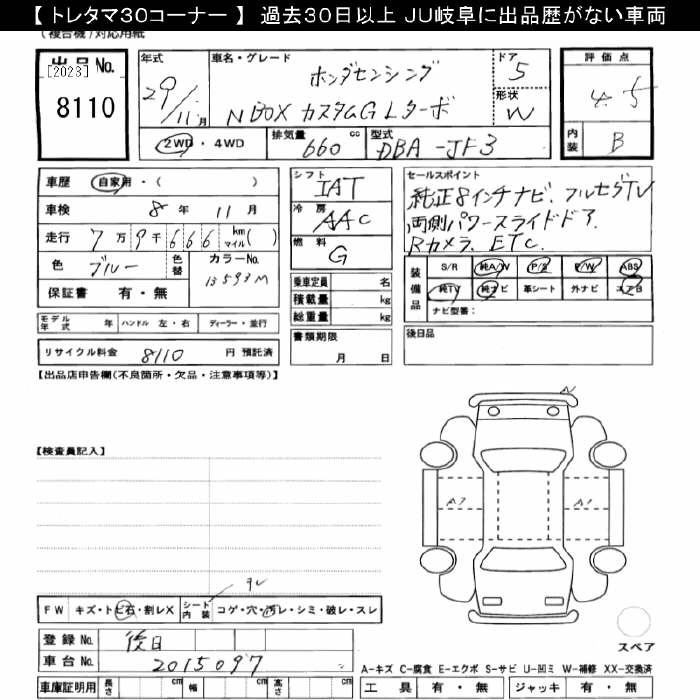 【 トレタマ30コーナー 】 過去30日以上 JU岐阜に出品歴がない車両
(複合機)対応用紙
出品 No.
[2023]
8110
年式
29/11月
車名・グレード
ホンダセンシング
NBOX カスタムG Lターボ
ドア
5
形状
W
評価点
4.5
内装
B
2WD ・ 4WD
排気量
660 cc
型式
DBA-JF3
車歴 自家用・( )
車検 8年 11月
走行 7万9千666 km マイル( )
色 ブルー
色替
カラーNo.
B593M
保証書 有・無
シフト
IAT
冷房
AAC
燃料
G
乗車定員 名
積載量 kg
総重量 kg
書類期限
月 日
セールスポイント
純正8インチナビ フルセグTV
両側パワースライドドア
Rカメラ ETC.
装備品
S/R 純A/W P/S P/W ABS
純TV 純ナビ 革シート 外ナビ エアB
ナビ型番:
モデル年式 年 ハンドル 左・右 ディーラー・並行
リサイクル料金 8110 円 預託済
後日品
【出品店申告欄(不良箇所・欠品・注意事項等)】
【検査員記入】
A
A2
A1
スレ
FW キズ・トビ石・割レX シート内装 コゲ・穴・汚レ・シミ・破レ・スレ
登録 No. 後日
車台 No. 2015097
車庫証明用 長さ cm 幅 cm 高さ cm
スペア
A-キズ C-腐食 E-エクボ S-サビ U-凹ミ W-補修 XX-交換済
工具 有・無 ジャッキ 有・無